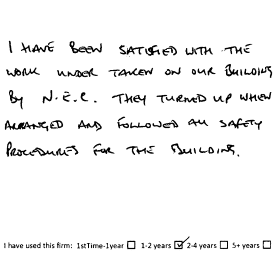 I HAVE BEEN SATISFIED WITH THE
WORK UNDER TAKEN ON OUR BUILDING
BY N.E.C. THEY TURNED UP WHEN
ARRANGED AND FOLLOWED ALL SAFETY
PROCEDURES FOR THE BUILDING.
I have used this firm: 1stTime-1year ☐ 1-2 years ☑ 2-4 years ☐ 5+ years ☐